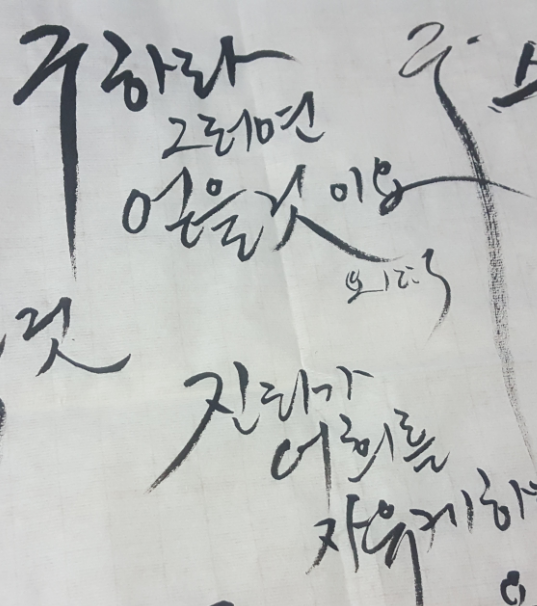 구하라
그러면
얻을것이요
것
진리가
너희를
자유케하